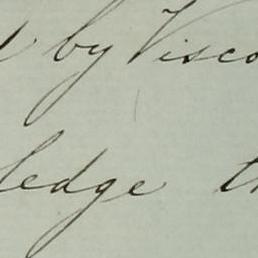 by Visco
ledge th